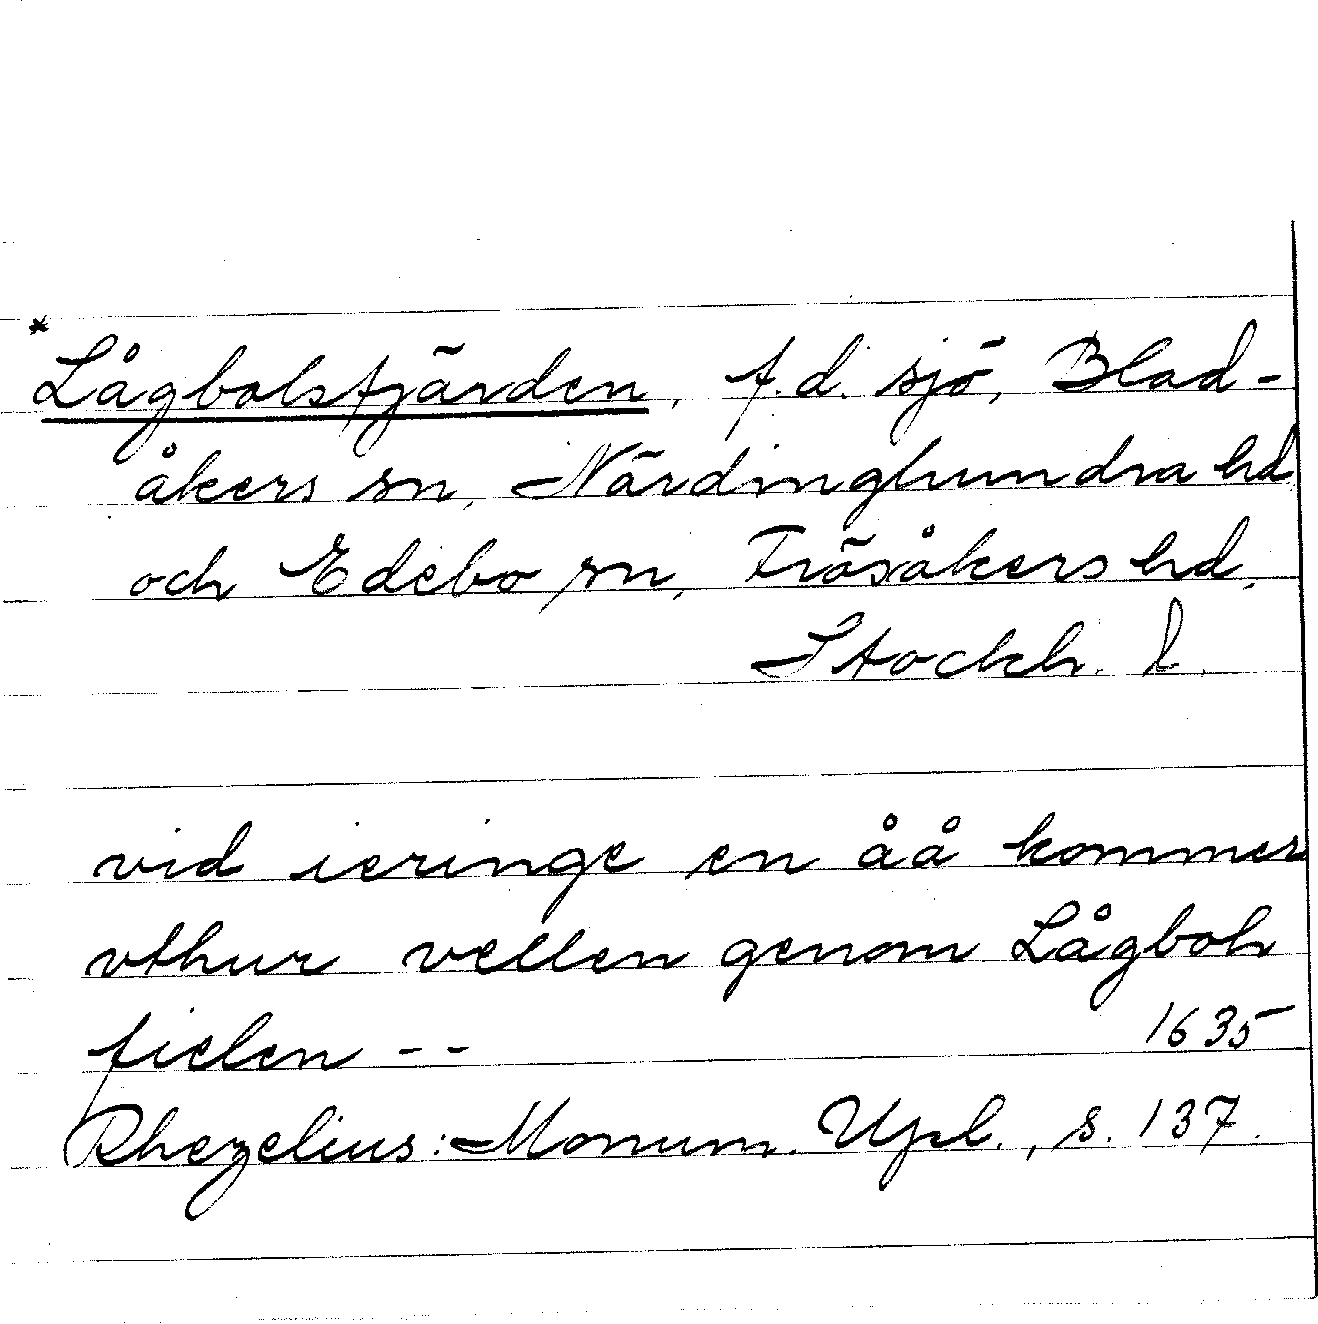 *Lågbolsfjärden, f.d. sjö, Blad-
åkers sn, Närdinghundra hd
och Edebo sn, Frösåkers hd,
Stockh. l.
vid ieringe en åå kommer
vthur vellen genom Lågboh
fielen - -
1635
Rhezelius: Monum. Upl., s. 137.